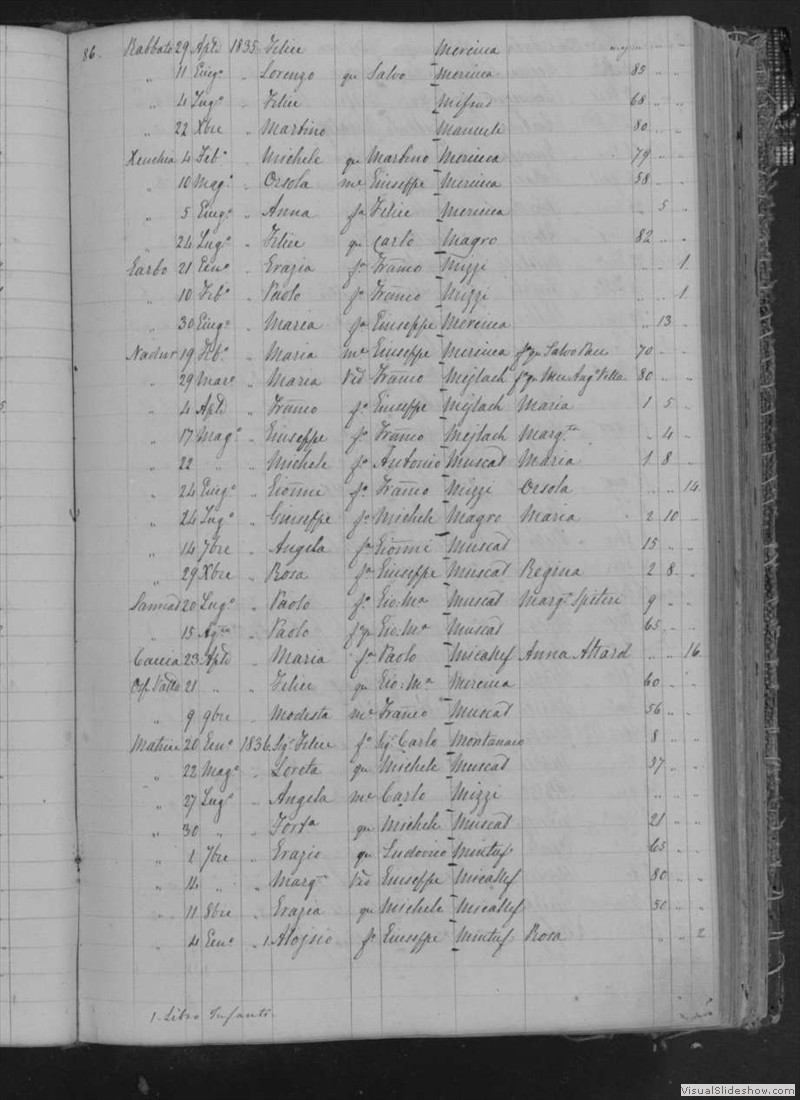 86. Rabbato 29 Aple 1835 Felice Mercieca
" 11 Giug.o " Lorenzo qu Salvo Mercieca 85 " "
" 4 Lug.o " Felice Mifsud 68 " "
" 22 Xbre " Martino Manuele 80 " "
Xeuchia 4 Feb.o " Michele qu Martino Mercieca 79 " "
" 10 Mag.o " Orsola me Giuseppe Mercieca 58 " "
" 5 Giug.o " Anna fa Felice Mercieca " 5 "
" 24 Lug.o " Felice qu Carlo Magro 82 " "
Garbo 21 Gen.o " Grazia fa Franco Mizzi " " 1
" 10 Feb.o " Paolo fo Franco Mizzi " " 1
" 30 Giug.o " Maria fa Giuseppe Mercieca " 13 "
Nadur 19 Feb.o " Maria me Giuseppe Mercieca fa qu Salvo 70 " "
" 29 Maro " Maria Ved Franco Mejlach fa qu Ang.o Vella 80 " "
" 4 Aple " Franco fo Giuseppe Mejlach Maria 1 5 "
" 17 Mag.o " Giuseppe fo Franco Mejlach Marg.ta " 4 "
" 22 " " Michele fo Antonio Muscat Maria 1 8 "
" 24 Giug.o " Gionni fo Franco Mizzi Orsola " " 14
" 24 Lug.o " Giuseppe fo Michele Magro Maria 2 10 "
" 14 7bre " Angela fa Gionni Muscat 15 " "
" 29 Xbre " Rosa fa Giuseppe Muscat Regina 2 8 "
Sannat 20 Lug.o " Paolo fo Gio: Ma Muscat Marg.a Spiteri 9 " "
" 15 " Paolo Gio: Ma Muscat 65 " "
Caccia 23 Aple " Maria fa Paolo Micallef Anna Attard " " 16
21 " " Felice qu Gio: Ma Mercieca 60 " "
" 9 9bre " Modesta me Franco Muscat 56 " "
Matrice 20 Gen.o 1836 Sig. Felice fo Sig. Carlo Montanaro 8 " "
" 22 Mag.o " Loreta qu Michele Muscat 37 " "
" 27 Lug.o " Angela me Carlo Mizzi " " "
" 30 " " Forta qu Michele Muscat 21 " "
" 1 7bre " Grazio qu Ludovico Mintuf 65 " "
" 14 " " Marg.a Ved Giuseppe Micallef 80 " "
" 11 8bre " Grazia qu Michele Micallef 50 " "
" 4 Gen.o " 1. Aloisio fo Giuseppe Mintuf Rosa " " 2
1. Libro Infanti.
VisualSlideshow.com